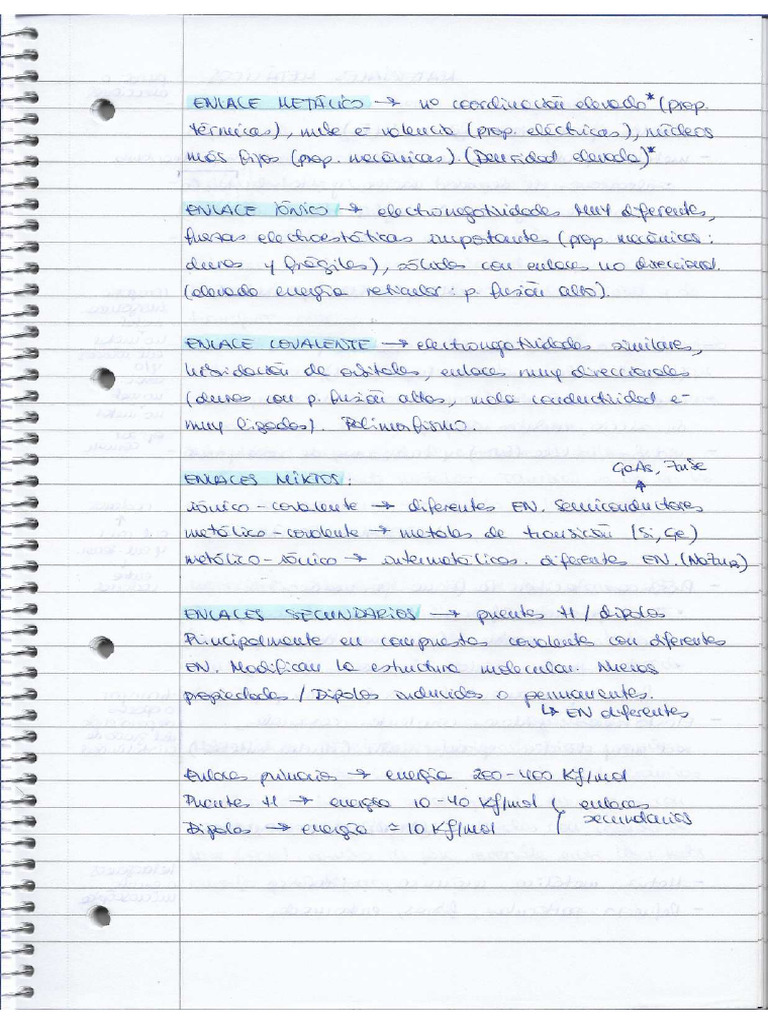 ENLACE METÁLICO → nº coordinación elevado* (prop.
térmicas), nube e⁻ valencia (prop. eléctricas), núcleos
más fijos (prop. mecánicas). (Densidad elevada)*
ENLACE IÓNICO → electronegatividades MUY diferentes,
fuerzas electroestáticas importantes (prop. mecánicas:
duros y frágiles), sólidos con enlace no direccional.
(elevada energía reticular: p. fusión alto).
ENLACE COVALENTE → electronegatividades similares,
hibridación de orbitales, enlaces muy direccionales
(duros con p. fusión altos, mala conductividad e⁻
muy ligados). Polimorfismo.
GaAs, ZnSe
ENLACES MIXTOS:
iónico-covalente → diferentes EN. Semiconductores
metálico-covalente → metales de transición (Si, Ge)
metálico-iónico → intermetálicos. diferentes EN.
ENLACES SECUNDARIOS → puentes H / dipolos
Principalmente en compuestos covalentes con diferentes
EN. Modifican la estructura molecular. Nuevas
propiedades / Dipolos inducidos o permanentes.
↳ EN diferentes
Enlaces primarios → energía 200-400 KJ/mol
Puentes H → energía 10-40 KJ/mol ( enlaces
Dipolos → energía ≃ 10 KJ/mol ( secundarios